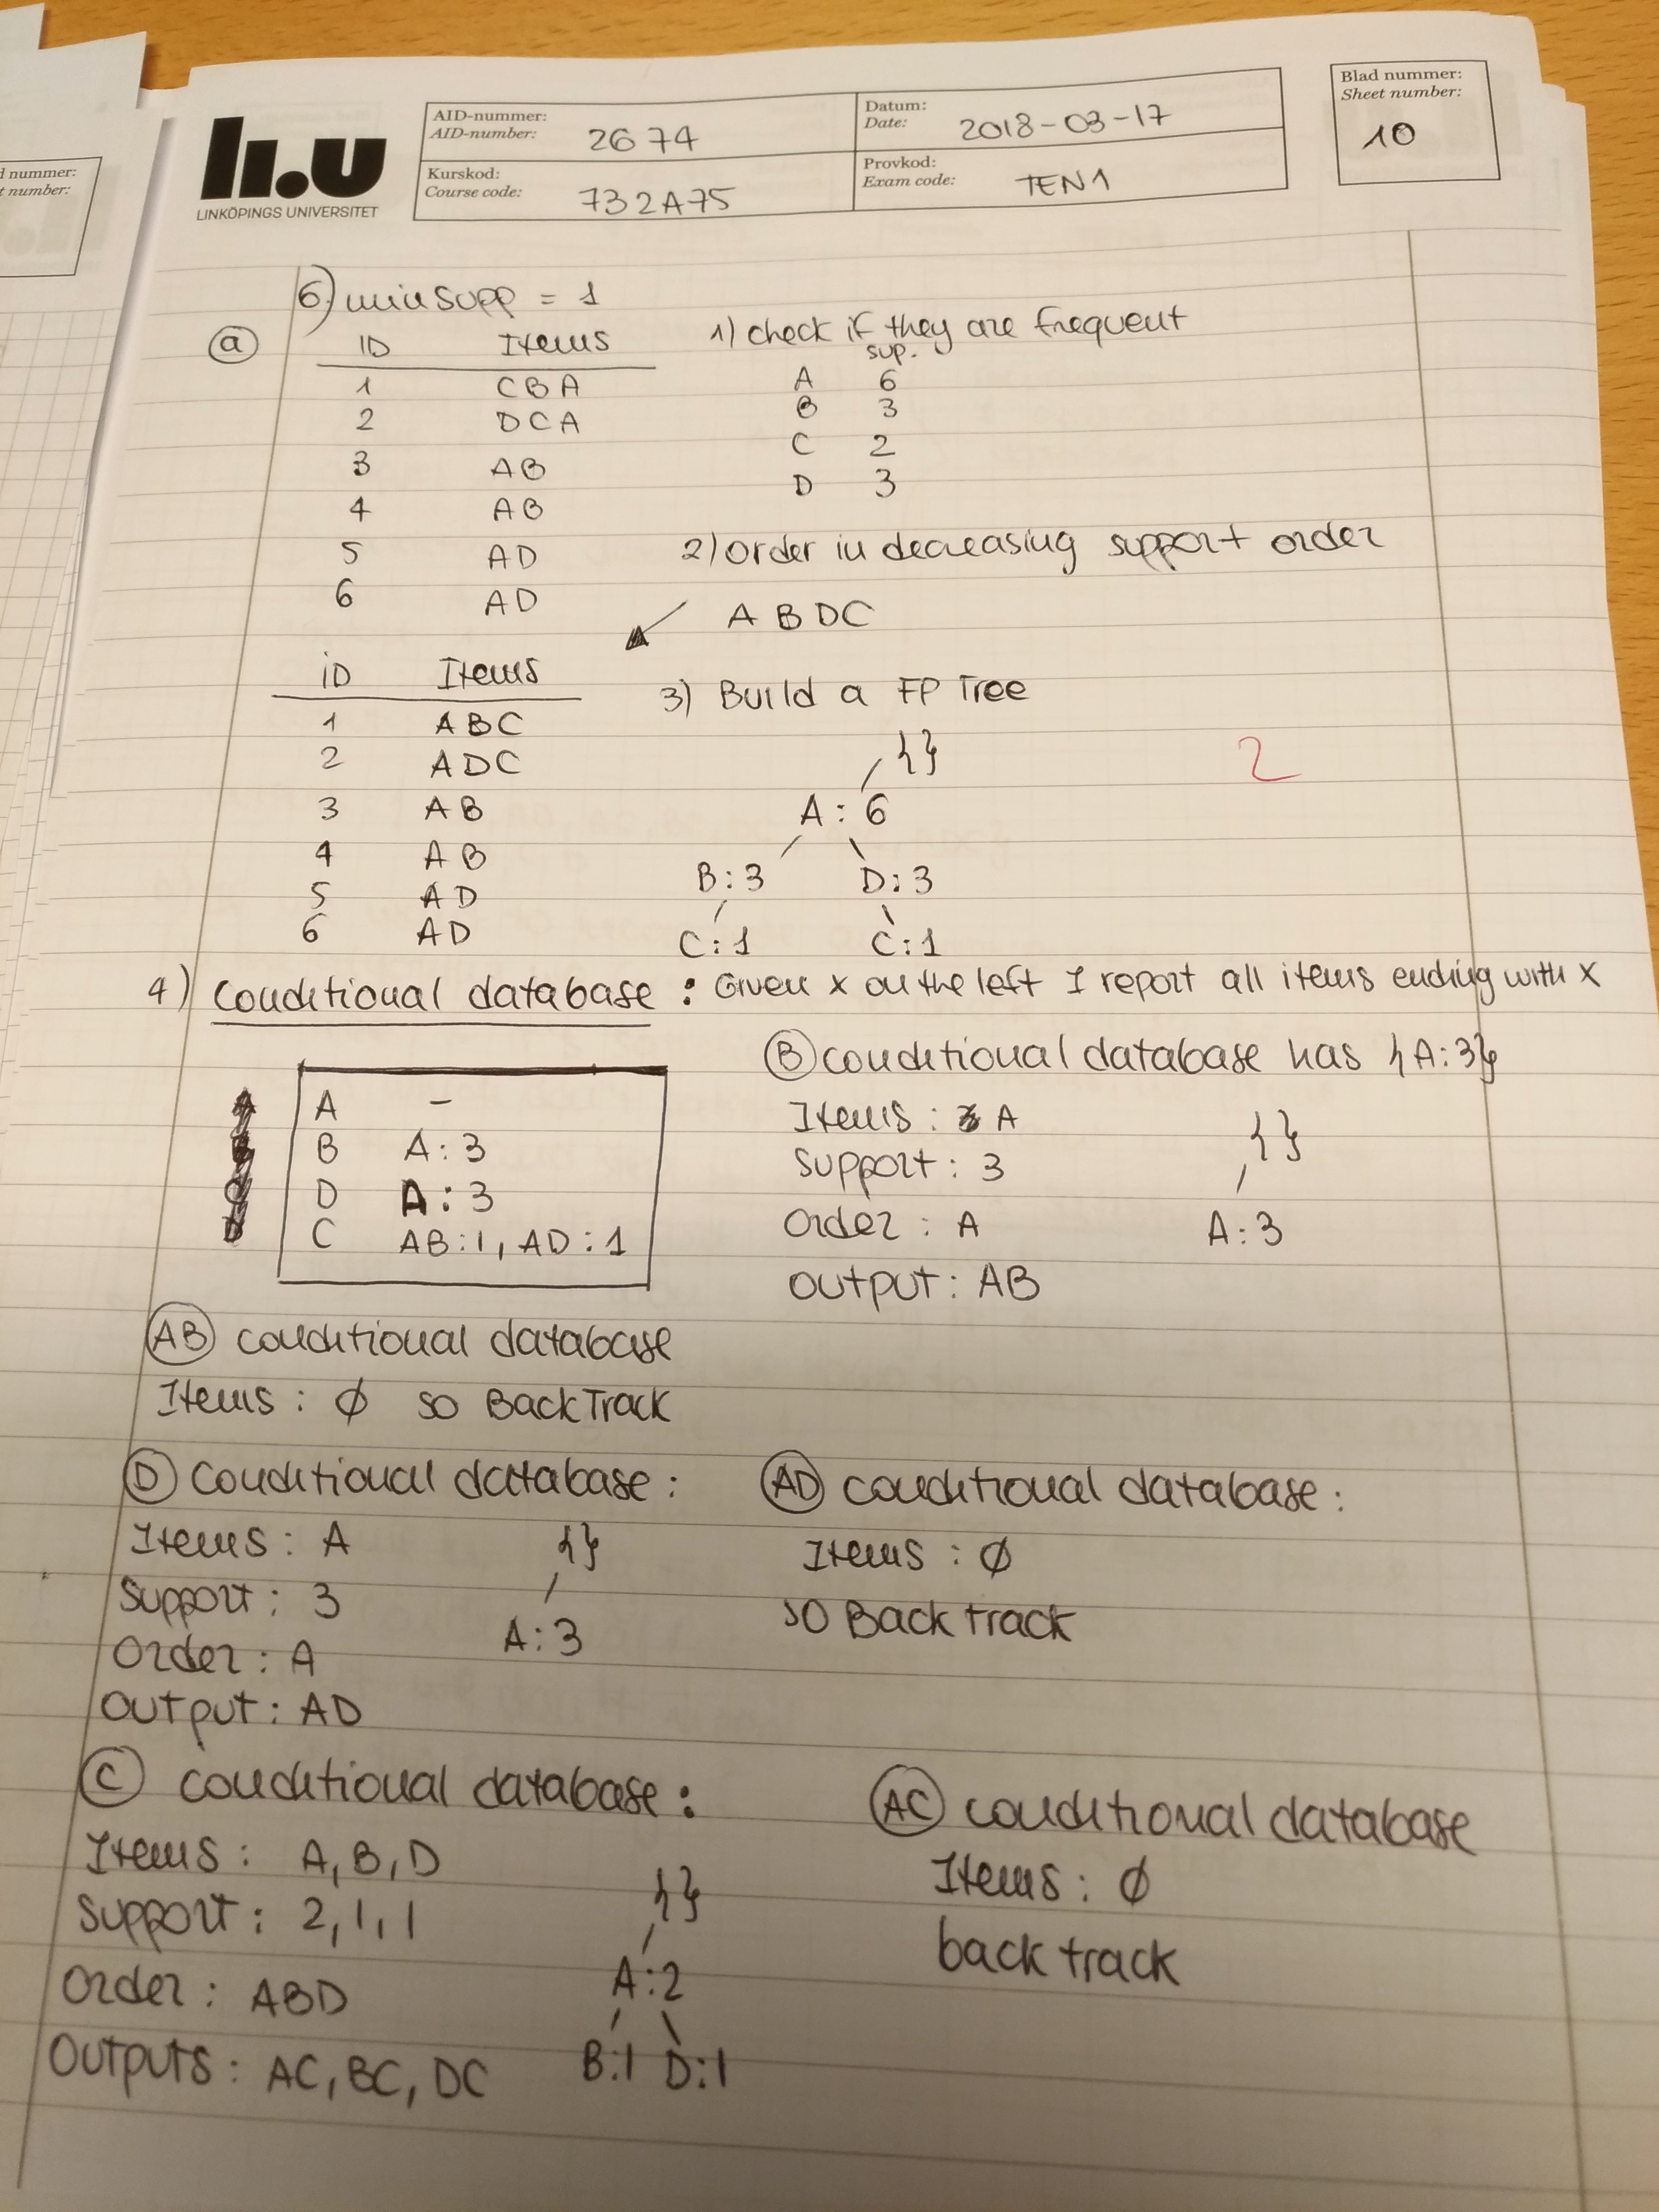 d nummer:
t number:
li.u
LINKÖPINGS UNIVERSITET
AID-nummer:
AID-number: 2674
Datum:
Date: 2018-03-17
Kurskod:
Course code: 732A75
Provkod:
Exam code: TEN1
Blad nummer:
Sheet number:
10
6) minsupp = 1
a
ID Items
1 CBA
2 DCA
3 AB
4 AB
5 AD
6 AD
1) check if they are frequent
sup.
A 6
B 3
C 2
D 3
2) order in decreasing support order
A B D C
ID Items
1 ABC
2 ADC
3 AB
4 AB
5 AD
6 AD
3) Build a FP Tree
{}
A : 6
B : 3 D : 3
C : 1 C : 1
2
4) Conditional database : Given x on the left I report all items ending with x
A -
B A : 3
D A : 3
C AB : 1, AD : 1
B conditional database has {A:3}
Items : A
Support : 3
Order : A
Output : AB
{}
A : 3
AB conditional database
Items : ∅ so BackTrack
D conditional database :
Items : A
Support : 3
Order : A
Output : AD
{}
A : 3
AD conditional database :
Items : ∅
so Back track
C conditional database :
Items : A, B, D
Support : 2, 1, 1
Order : ABD
Outputs : AC, BC, DC
{}
A : 2
B : 1 D : 1
AC conditional database
Items : ∅
back track